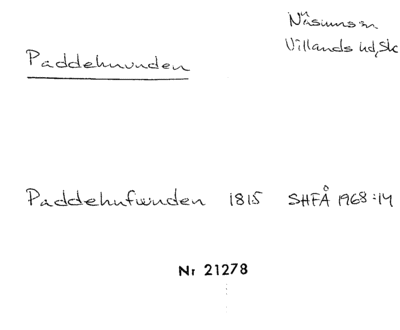 Näsums sn
Villands hd, Sk
Paddehnunden
Paddehufwuden 1815 SHFÅ 1968:14
Nr 21278